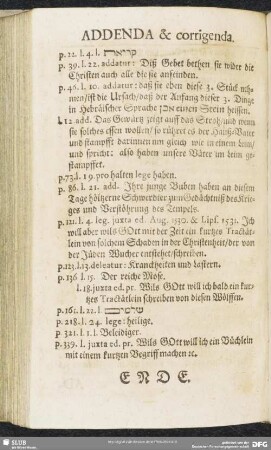 ADDENDA & corrigenda.
p. 22. l. 4. l. קריאת
p. 39. l. 22. addatur: Diß Gebet bethen sie wider die
Christen auch alle die sie anfeinden.
p. 46. l. 10. addatur: daß sie eben diese 3. Stück nehmen
/ ist die Ursach / daß der Anfang dieser 3. Dinge
in Hebräischer Sprache אבן einen Stein heissen.
l. 12 add. Das Gewürtz zeigt auff das Stroh / und wenn
sie solches essen wollen / so rühret es der Hauß-Vater
und stampfft darinnen um gleich wie in einem
und spricht: also haben unsere Väter im leim gestampffet.
p. 73. l. 19. pro halten lege haben.
p. 86. l. 21. add. Ihre junge Buben haben an diesem
Tage höltzerne Schwerdter zum Gedächtniß des Krieges
und Verstöhrung des Tempels.
p. 111. l. 4. leg. juxta ed. Aug. 1530. & Lips. 1531. Ich
will aber wils GOtt mit der Zeit ein kurtzes Tractätlein
von solchem Schaden in der Christenheit / der von
der Jüden Wucher entstehet / schreiben.
p. 123. l. 13. deleatur: Kranckheiten und lästern.
p. 136. l. 15. Der reiche Mose.
l. 18. juxta ed. pr. Wils GOtt will ich bald ein kurtzes
Tractätlein schreiben von diesen Wölffen.
p. 161. l. 22. l.
p. 218. l. 24. lege: heilige.
p. 321. l. 1. l. Beleidiger.
p. 339. l. juxta ed. pr. Wils GOtt will ich ein Büchlein
mit einem kurtzen Begriff machen ꝛc.
ENDE.
SLUB
DFG